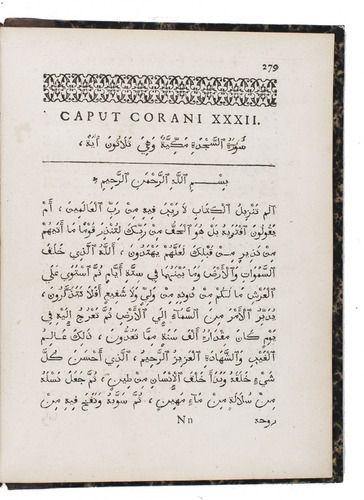 279
CAPUT CORANI XXXII.
سُورَةُ السَّجْدَةِ مَكِّيَّةٌ وَهِيَ ثَلَاثُونَ آيَةً ،
بِسْــمِ ٱللَّهِ ٱلرَّحْمَنِ ٱلرَّحِيمِ *
الم تَنْزِيلُ ٱلْكِتَابِ لَا رَيْبَ فِيهِ مِنْ رَبِّ ٱلْعَالَمِينَ ، أَمْ
يَقُولُونَ ٱفْتَرَيهُ بَلْ هُوَ ٱلْحَقُّ مِنْ رَبِّكَ لِتُنْذِرَ قَوْمًا مَا أَتَيهُمْ
مِنْ نَذِيرٍ مِنْ قَبْلِكَ لَعَلَّهُمْ يَهْتَدُونَ ، ٱللَّهُ ٱلَّذِي خَلَقَ
السَّمَوَاتِ وَٱلْأَرْضَ وَمَا بَيْنَهُمَا فِي سِتَّةِ أَيَّامٍ ثُمَّ ٱسْتَوَي عَلَي
ٱلْعَرْشِ مَا لَكُمْ مِنْ دُونِهِ مِنْ وَلِيٍّ وَلَا شَفِيعٍ أَفَلَا تَتَذَكَّرُونَ ،
يُدَبِّرُ ٱلْأَمْرَ مِنَ السَّمَاءِ إِلَي ٱلْأَرْضِ ثُمَّ تَعْرُجُ إِلَيْهِ فِي
يَوْمٍ كَانَ مِقْدَارُهُ أَلْفَ سَنَةٍ مِمَّا تَعُدُّونَ ، ذَلِكَ عَالِمُ
ٱلْغَيْبِ وَالشَّهَادَةِ ٱلْعَزِيزُ ٱلرَّحِيمُ ، ٱلَّذِي أَحْسَنَ كُلَّ
شَيْءٍ خَلَقَهُ وَبَدَأَ خَلْقَ ٱلْإِنْسَانِ مِنْ طِينٍ ، ثُمَّ جَعَلَ نَسْلَهُ
مِنْ سُلَالَةٍ مِنْ مَاءٍ مَهِينٍ ، ثُمَّ سَوَّيهُ وَنَفَخَ فِيهِ مِنْ
Nn روحه